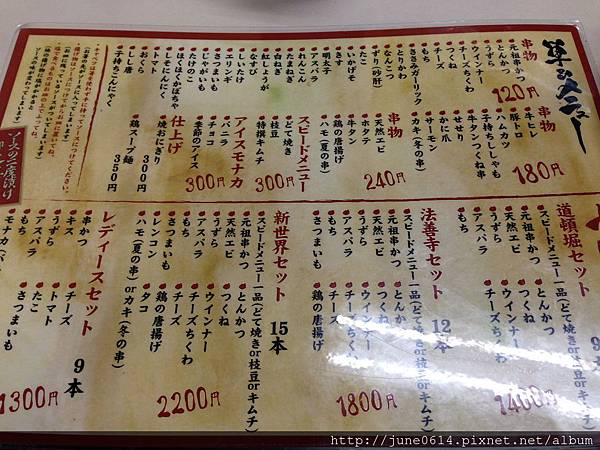 単品メニュー
串物
元祖串かつ
とんかつ
うずら
ウインナー
チーズちくわ
チーズ
つくね
もち
ささみガーリック
とりかわ
なんこつ
ずり(砂肝)
いかげそ
たこ
きす
明太子
アスパラ
れんこん
たまねぎ
白ねぎ
紅しょうが
なすび
しいたけ
エリンギ
さつまいも
じゃがいも
たけのこ
ほくほくかぼちゃ
しそにんにく
トマト
おくら
ししとう
子持ちこんにゃく
120円
牛ヒレ
豚トロ
ハムカツ
子持ちししゃも
牛タンつくね串
せせり
かに爪
サーモン
カキ(冬の串)
180円
串物
天然エビ
ホタテ
牛タン
鶏の唐揚げ
ハモ(夏の串)
240円
スピードメニュー
どて焼き
枝豆
特撰キムチ
300円
アイスモナカ
バニラ
チョコ
季節のアイス
300円
仕上げ
焼おにぎり 300円
鶏スープ麺 350円
ソースの二度漬け
道頓堀セット
スピードメニュー一品(どて焼きor枝豆orキムチ)
元祖串かつ
とんかつ
天然エビ
つくね
うずら
ウインナー
アスパラ
チーズちくわ
もち
1400円
法善寺セット
12本
スピードメニュー一品(どて焼きor枝豆orキムチ)
元祖串かつ
とんかつ
天然エビ
つくね
うずら
ウインナー
アスパラ
チーズちくわ
もち
チーズ
さつまいも
鶏の唐揚げ
1800円
新世界セット
15本
スピードメニュー一品(どて焼きor枝豆orキムチ)
元祖串かつ
とんかつ
天然エビ
つくね
うずら
ウインナー
アスパラ
チーズちくわ
もち
チーズ
さつまいも
鶏の唐揚げ
レンコン
タコ
ハモ(夏の串)orカキ(冬の串)
2200円
レディースセット
9本
串かつ
チーズ
キス
トマト
うずら
たこ
アスパラ
さつまいも
もち
1300円
http://june0614.pixnet.net/album